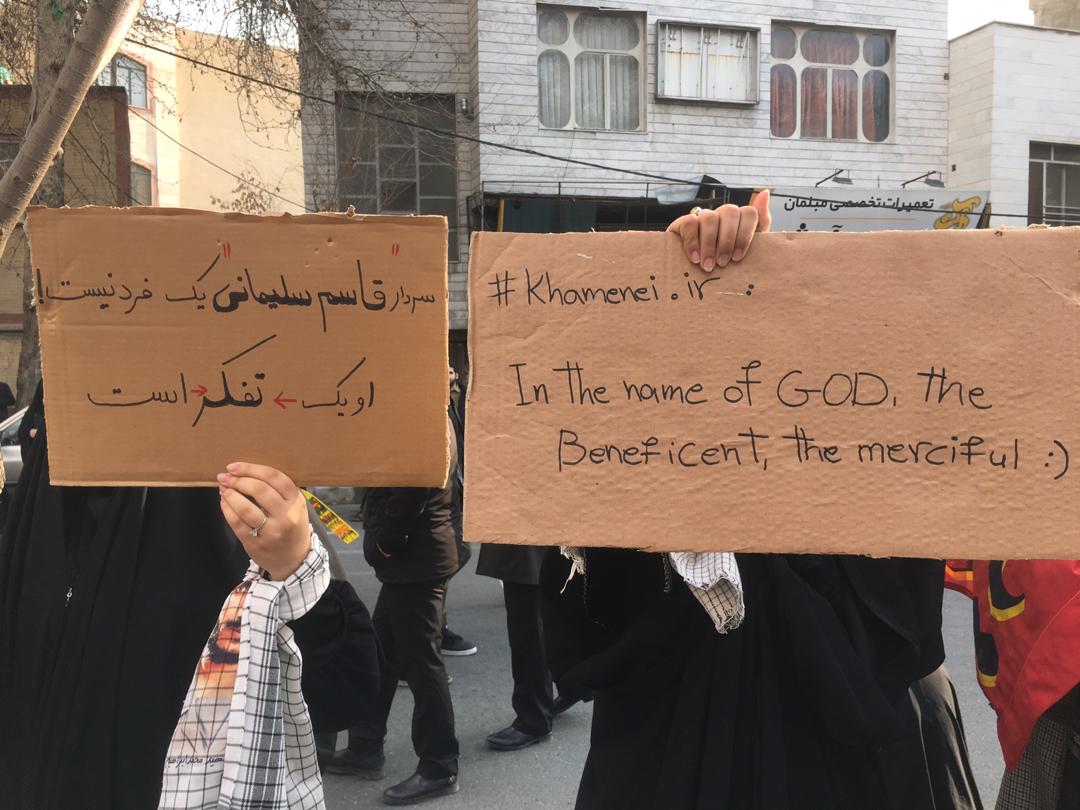 سردار "قاسم سلیمانی" یک فرد نیست!
او یک ← تفکر → است
#Khamenei.ir :
In the name of GOD, the
Beneficent, the merciful :)
تعمیرات تخصصی مبلمان